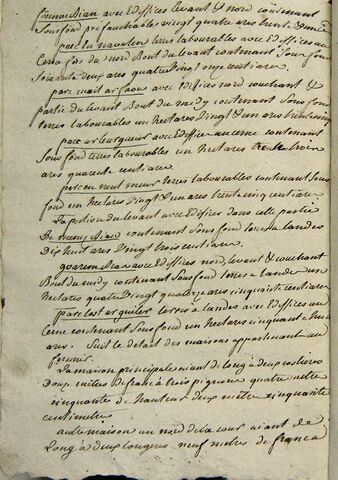 avec Edifices levant & nord contenant
Sous fond pré fauchables vingt quatre ares trente
parc terres labourables avec Edifices au
Cerne fors du nord Bout du levant contenant Sous fond
Soixante deux ares quatre vingt onze centiares
parc avec Edifices nord couchant &
partie du levant Bout du midy contenant Sous fond
terres labourables un hectares vingt & un ares
parc avec Edifices au cerne contenant
Sous fond terres labourables un hectares trente trois
ares quarente centiares
parc terres labourables contenant Sous
fond un hectares vingt & un ares trente cinq centiares
La portion du levant avec Edifices dans cette partie
De contenant Sous fond terres a landes
Dix huit ares vingt trois centiares
avec Edifices nord, levant & couchant
Bout du midy contenant Sous fond terres a landes un
hectares quatre vingt quatorze ares cinquante centiares
parc terres à landes avec Edifices au
Cerne contenant Sous fond un hectares cinquante
ares. Suit le détail des maisons appartenant au
fermier.
La maison principale aiant de long à deux costières
Douze mètres de franc à trois pignons quatre mètre
cinquante de hauteur deux mètre cinquante
centimètre
autre maison au nord de la cour aiant de
Long à deux longères neuf mètres de franc à